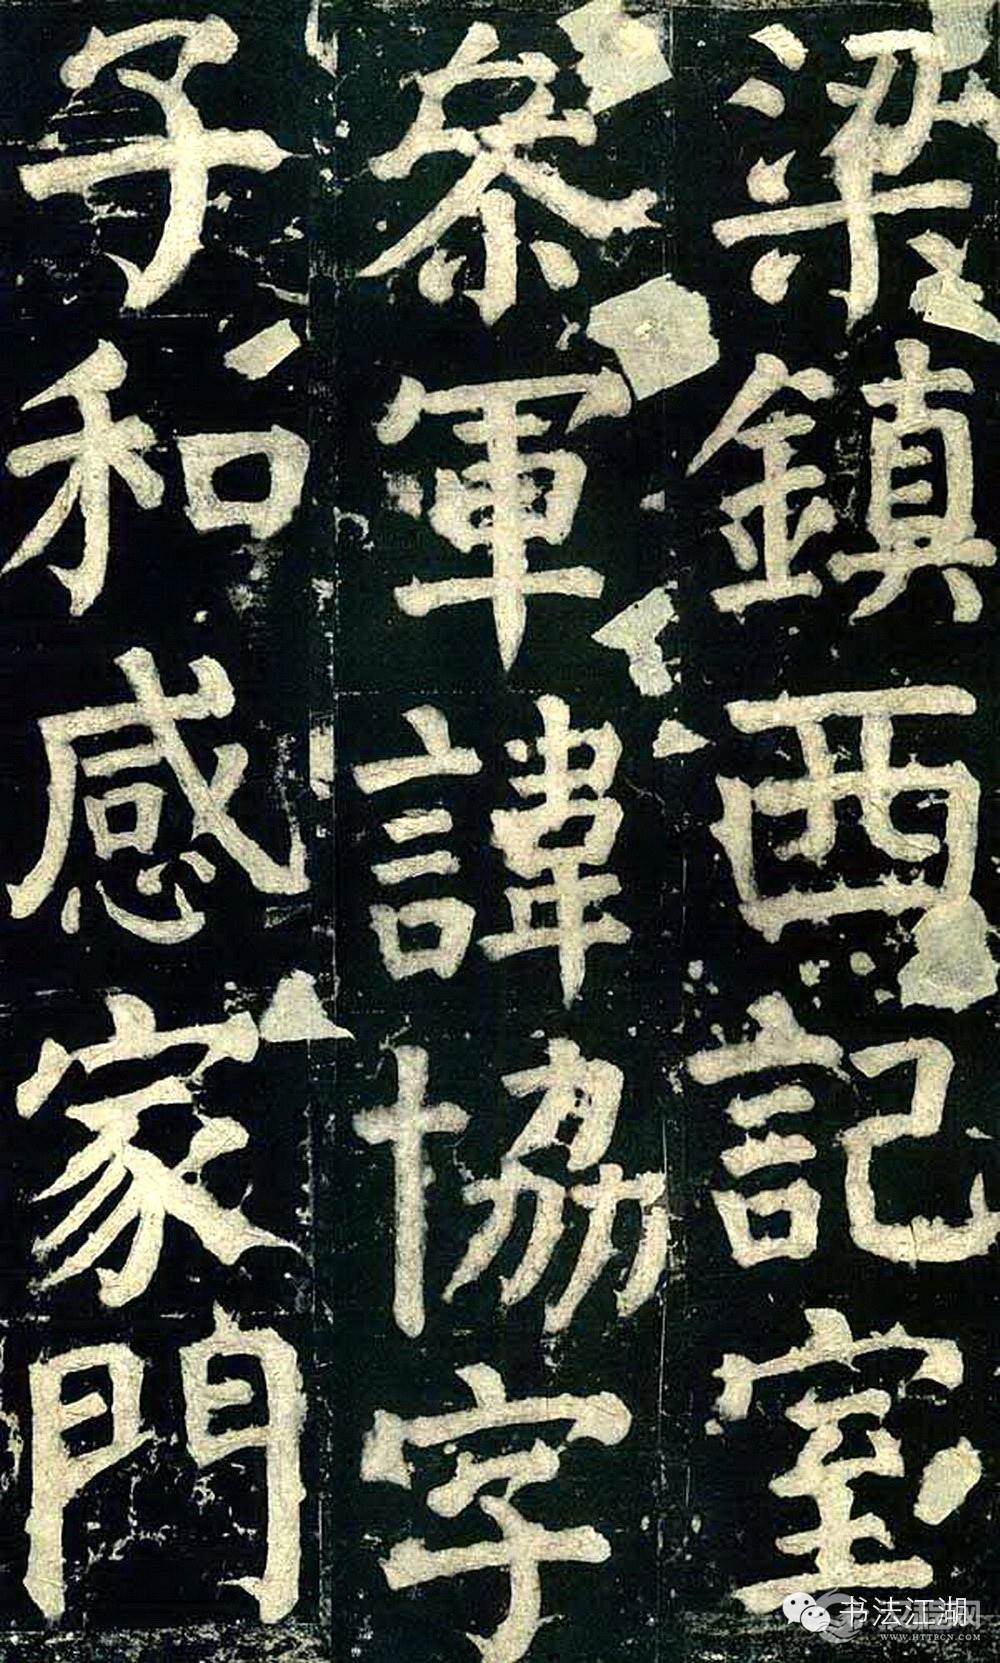 梁鎮西記室
叅軍諱協字
子和感家門
书法江湖
WWW.HTTPCN.COM